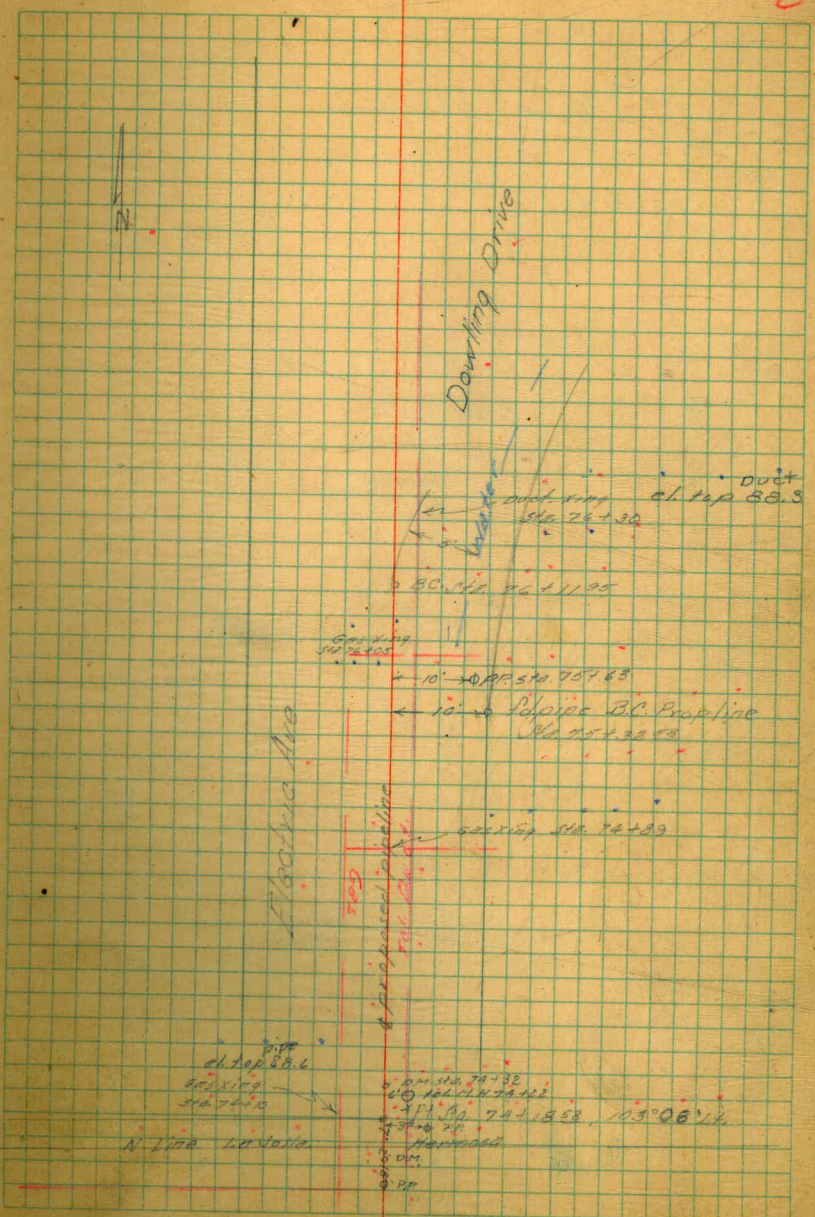 N
Dowling Drive
Duct
el. top 88.3
Duct Xing
Sta. 76+30
Water
5'
B.C. Sta. 76+11.95
Gas Xing
Sta 76+05
10' P.P. Sta. 75+63
10' fd pipe B.C. Prop line
Sta 75+32.53
Electric Ave
Gas Xing Sta. 74+89
Gas
proposed pipeline
Tel. Duct
pipe
el. top 88.6
Gas Xing
Sta 74+10
D.M. Sta. 74+32
6' Tel. M.H. 74+22
P.I. Sta. 74+18.58 103°06' Lt.
N Line La Jolla
Hermosa
D.M.
P.P.